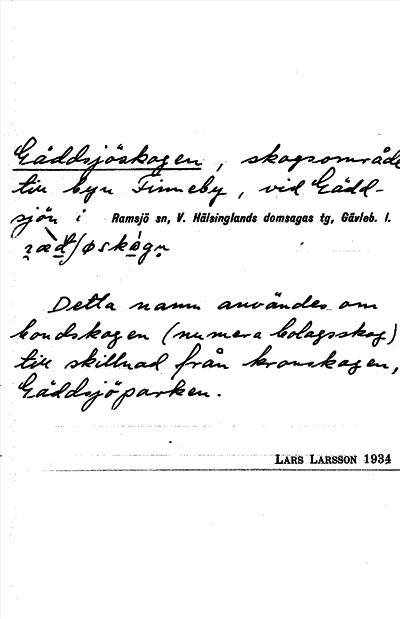 Gäddsjöskogen, skogsområde
till byn Finneby, vid Gädd-
sjön i Ramsjö sn, V. Hälsinglands domsagas tg, Gävleb. l.
Detta namn användes om
bondskogen (numera bolagsskog)
till skillnad från kronskogen,
Gäddsjöparken.
LARS LARSSON 1934